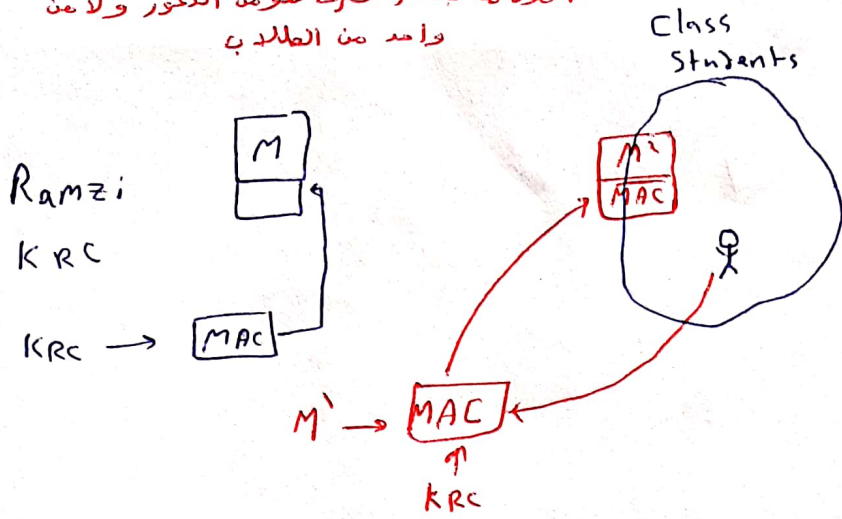 من الدكتور ولا من
واحد من الطلاب
Class
Students
M
Ramzi
KRC
KRC → MAC
M'
MAC
M' → MAC
KRC